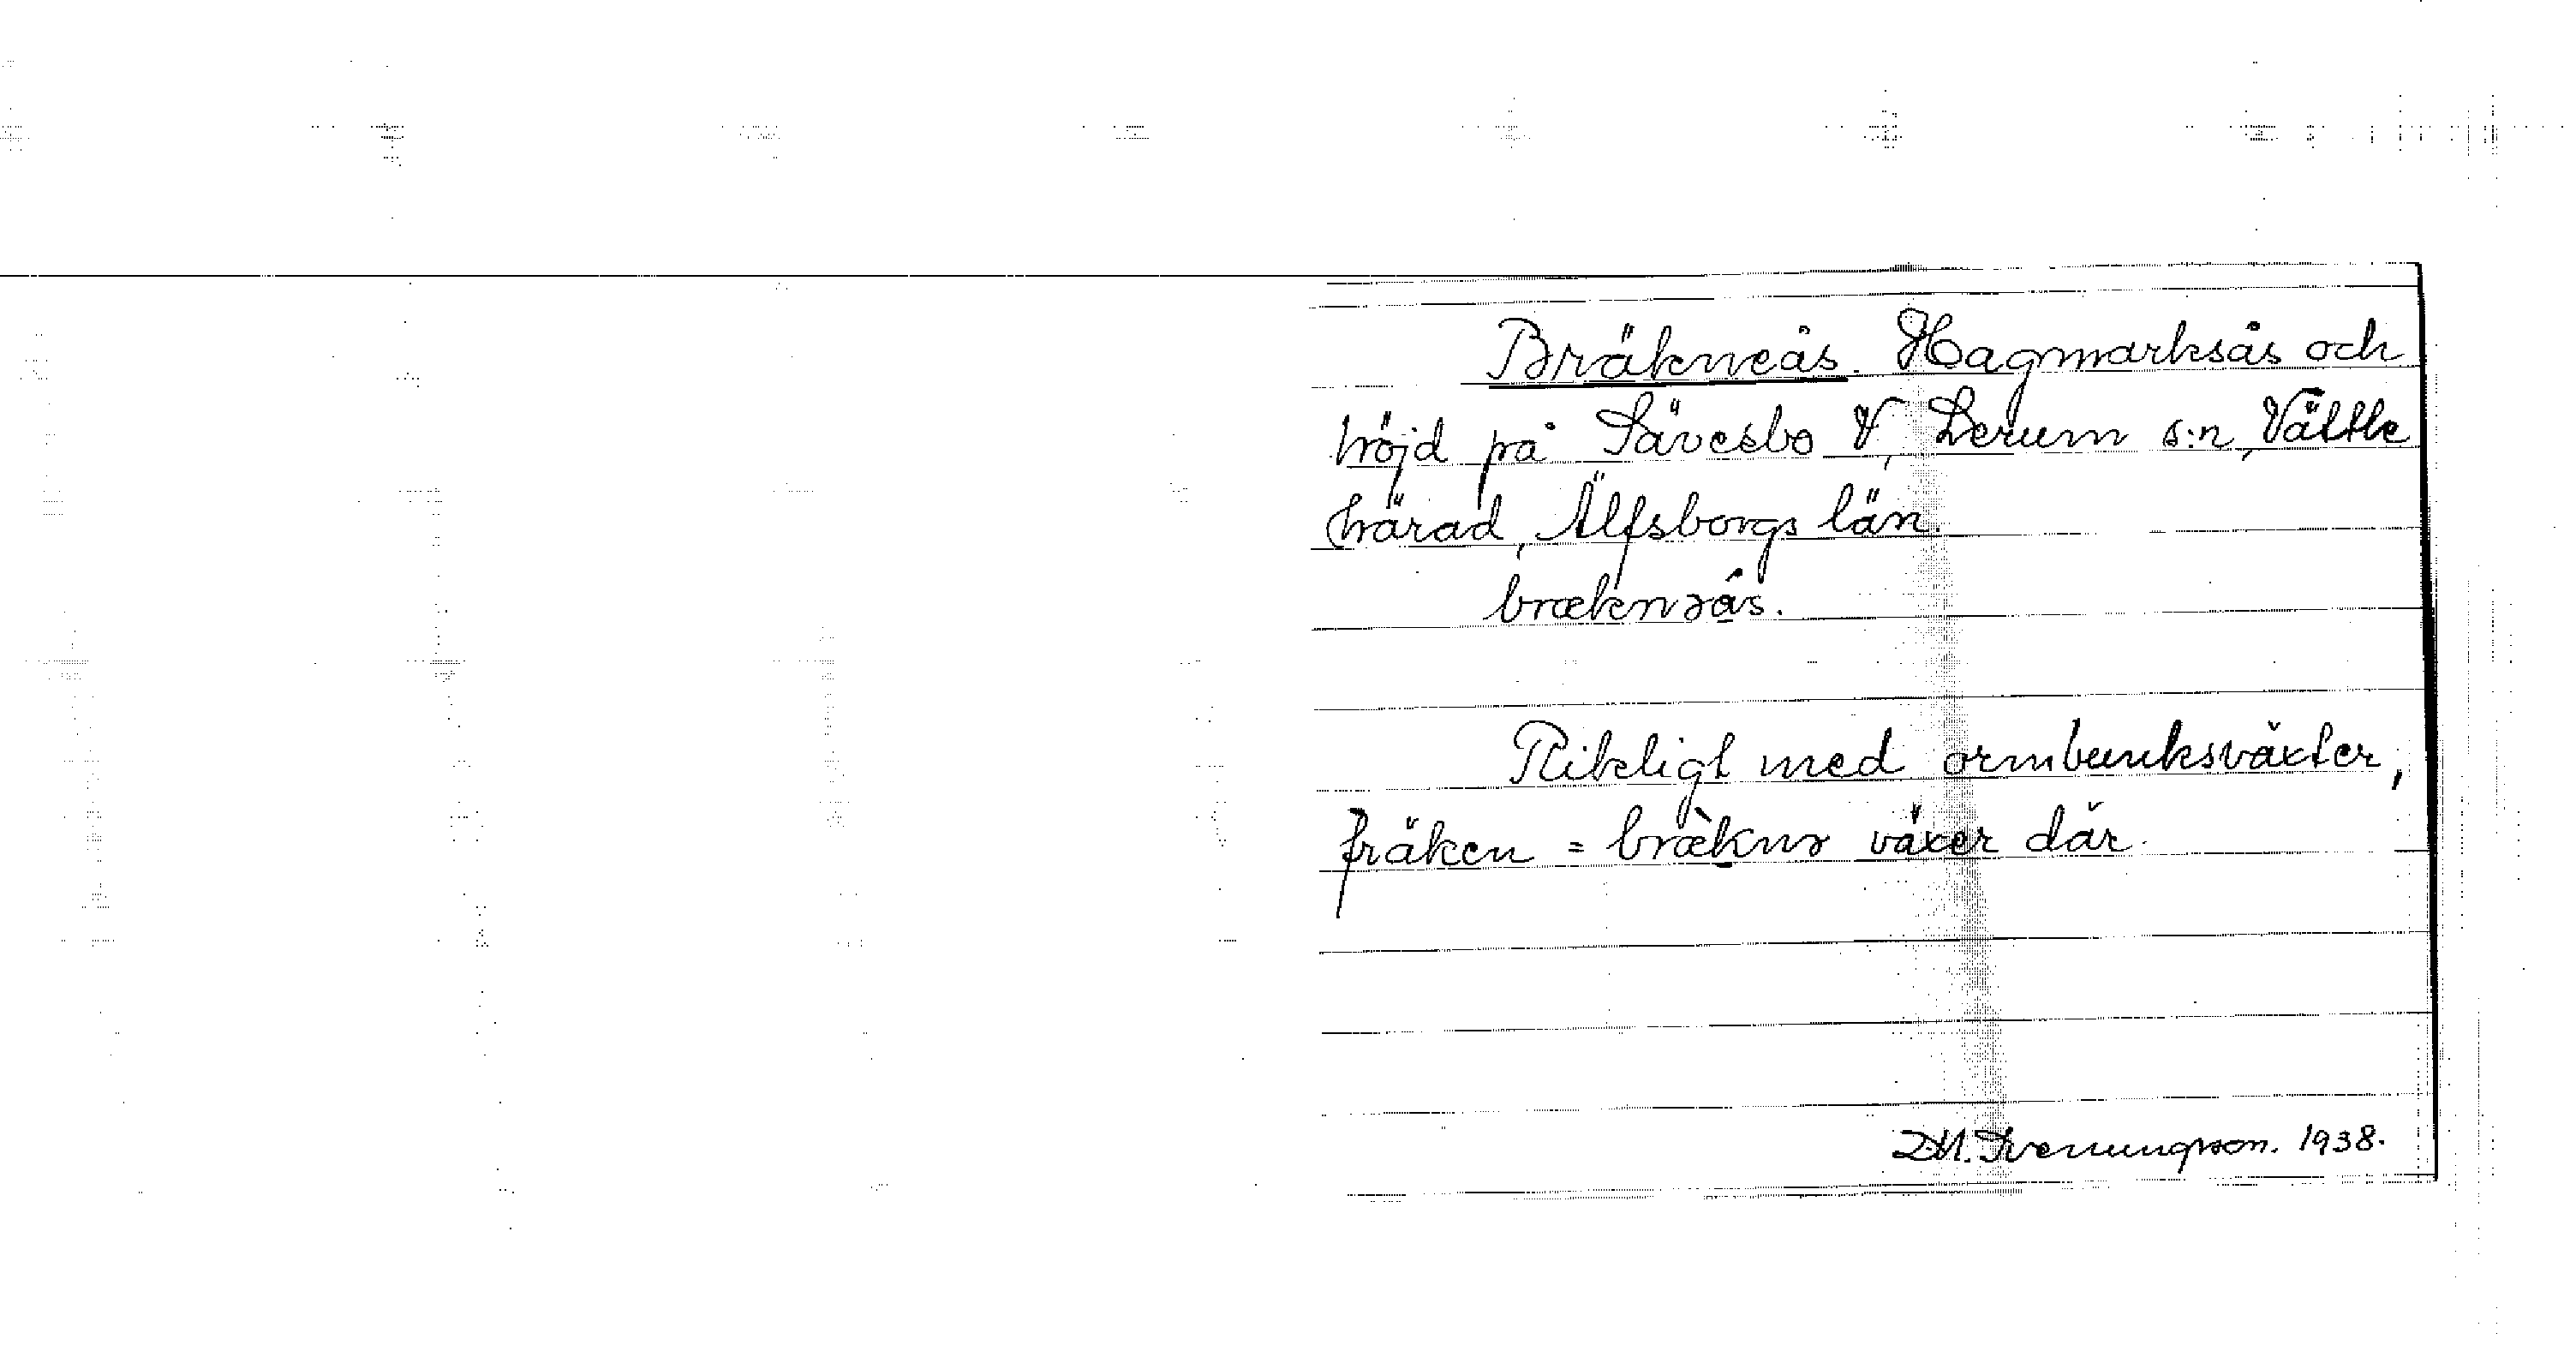 Bräkneås. Hagmarksås och
höjd på Sävesbo V, Lerum s:n, Vättle
härad, Älfsborgs län.
bræknɘås.
Rikeligt med ormbunksväxter,
fräken = bræknɘ växer där.
D.M. Svenungsson. 1938.